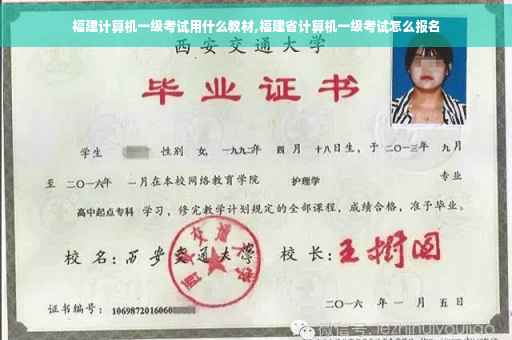 福建计算机一级考试用什么教材,福建省计算机一级考试怎么报名
西安交通大学
毕业证书
学生 性别 女, 一九九二年 四 月 十八日生, 于 二〇一三年 九 月
至 二〇一六年 一月在本校网络教育学院 护理学 专业
高中起点专科 学习, 修完教学计划规定的全部课程, 成绩合格, 准予毕业。
校 名: 西安交通大学 校 长: 王树国
西安交通大学
证书编号: 1069872016060
二〇一六 年 一 月 五 日
微信号: jezhihuiyoujiao